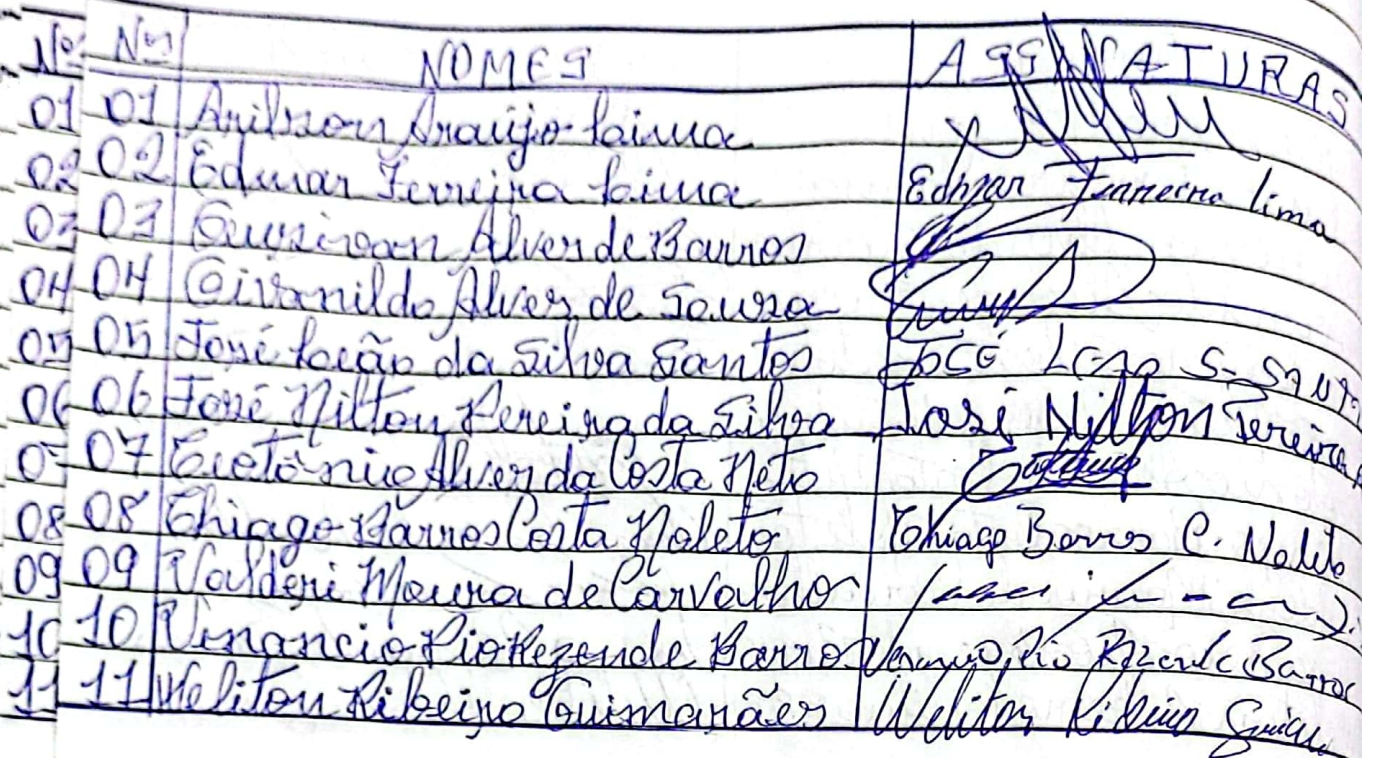 Nº Nº NOMES ASSINATURAS
01 01 Arilson Araújo Lima
02 02 Edmar Ferreira Lima Edmar Ferreira Lima
03 03 Alves de Barros
04 04 Givanildo Alves de Souza
05 05 José Leão da Silva Santos José Leão S. Santos
06 06 José Nilton Pereira da Silva José Nilton Pereira
07 07 Teotônio Alves da Costa Neto
08 08 Thiago Barros Costa Noleto Thiago Barros C. Noleto
09 09 Valderi Moura de Carvalho
10 10 Vinancio Pio Rezende Barros Pio Rezende Barros
11 11 Weliton Ribeiro Guimarães Weliton Ribeiro